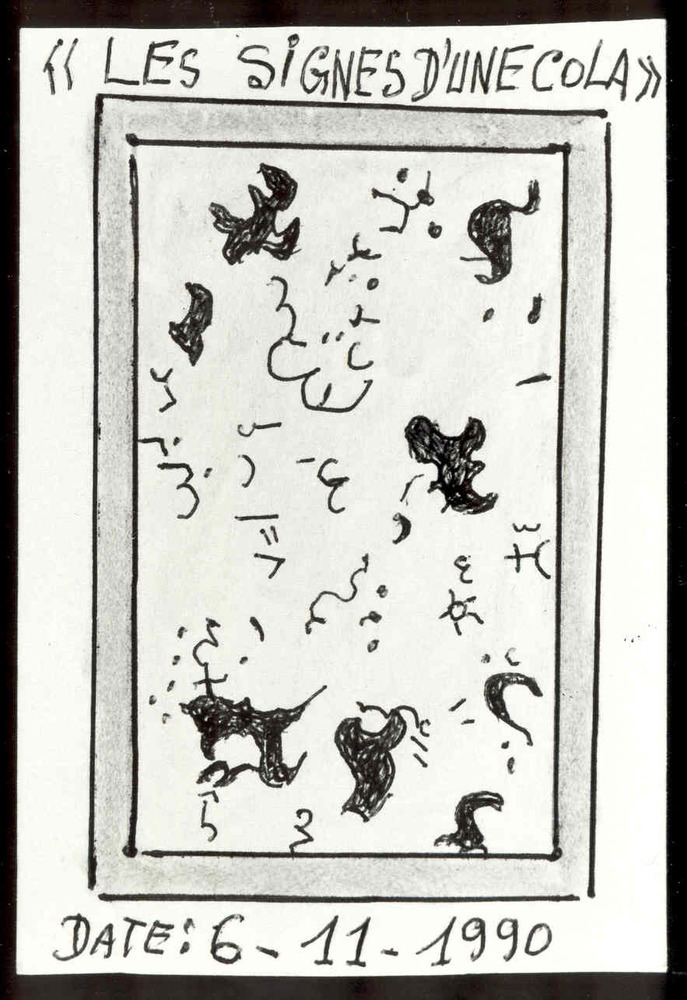 « LES SIGNES D'UNE COLA »
DATE: 6-11-1990